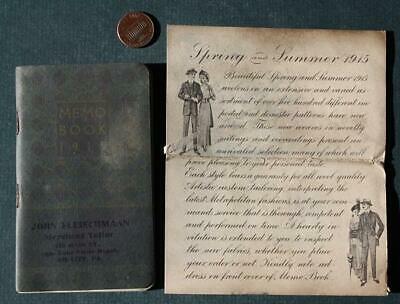 MEMO
BOOK
JOHN FLEISCHMAAN
Merchant Tailor
OIL CITY, PA.
Spring and Summer 1915
Beautiful Spring and Summer 1915
woolens in an extensive and varied as-
sortment of over five hundred different im-
ported and domestic patterns have now
arrived. These new weaves in novelty
suitings and overcoatings present an
unrivaled selection many of which will
prove pleasing to your personal taste.
Each style bears a guaranty for all wool quality
Artistic custom tailoring, interpreting the
latest Metropolitan fashions, is at your com-
mand service that is thorough, competent
and performed on time. A hearty in-
vitation is extended to you to inspect
the new fabrics, whether you place
your order or not. Kindly note ad-
dress on front cover of Memo Book.